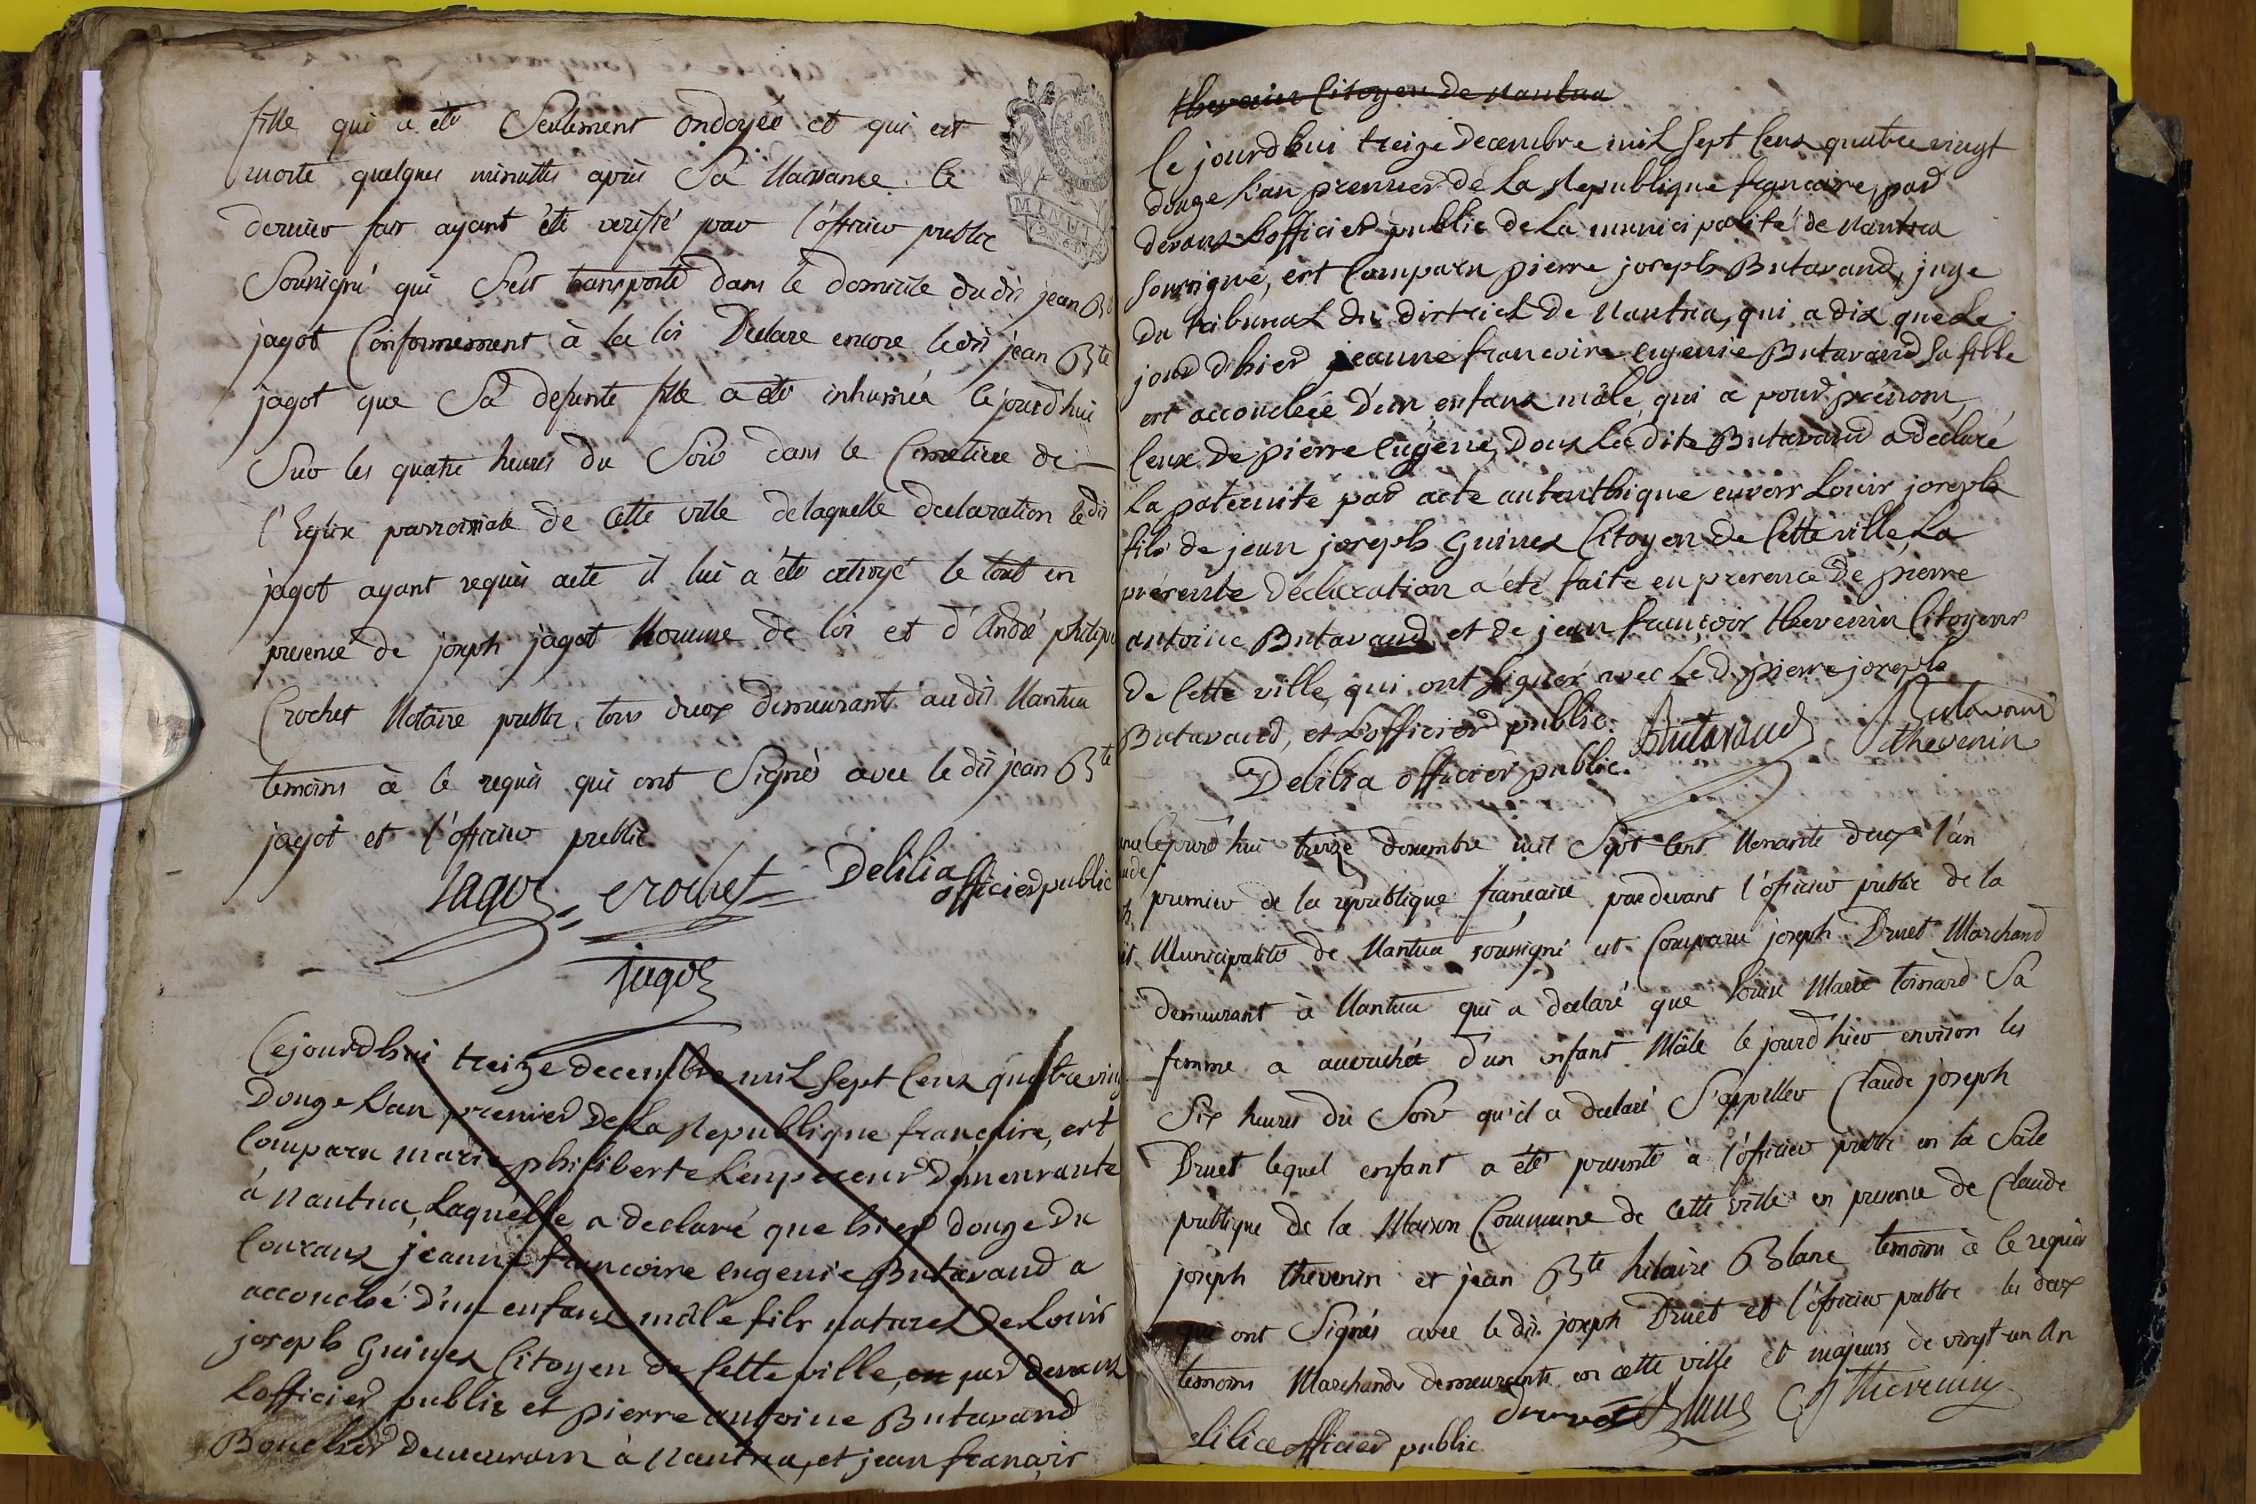 fille qui a été Seulement ondoyée et qui est
morte quelques minuttes après Sa Naissance. Ce
dernier fait ayant été verifié par l'officier public
MINUT
Soussigné qui s'est transporté dans le domicile dudit jean Bte
jagot Conformement à la loi Declare encore ledit jean Bte
jagot que Sa defunte fille a été inhumée cejourd'hui
Sur les quatre heures du Soir dans le Cimetiere de
l'Eglise parroissiale de cette ville de laquelle declaration ledit
jagot ayant requis acte il lui a été octroyé le tout en
presence de joseph jagot Homme de loi et d'André philipe
Crochet Notaire public, tous deux demeurant audit Nantua
temoins à ce requis qui ont Signés avec ledit jean Bte
jagot et l'officier public
Jagot crochet Delilia
officier public
jagot
Cejourd'hui treize decembre mil Sept Cent quatre ving
Douze L'an premier De La Republique françoise, est
Comparu marie philiberte Lempereur Demeurante
à Nantua, Laquelle a declaré que hier douze Du
Courant jeanne francoise eugenie Butavand a
accouché D'un enfant mâle fils naturel De Louis
joseph Guinet Citoyen de Cette ville, par devant
L'officier public et pierre antoine Butavand
Boucher Demeurant à Nantua, et jean françois
thevenin Citoyen de Nantua
Ce jourd'hui treize Decembre mil Sept Cent quatre vingt
douze L'an premier de La Republique françoise, par
devant L'officier public de La municipalité de Nantua
soussigné, est Comparu pierre joseph Butavand, juge
Du tribunal Du District De Nantua, qui a dit que Le
jour d'hier jeanne francoise eugenie Butavand Sa fille
est accouchée D'un enfant mâle, qui a pour prénom
Ceux De pierre eugène, Dont La dite Butavand a declaré
La paternité par acte autenthique envers Louis joseph
fils de jean joseph Guinet Citoyen de Cette ville, La
présente Déclaration a été faite en presence De pierre
antoine Butavand et de jean françois thevenin Citoyens
de Cette ville, qui ont signés avec Le D. pierre joseph
Butavand, et L'officier public. Butavand Butavand
thevenin
Delilia officier public.
Cejourd'hui treize decembre mil Sept Cent Nonante deux l'an
premier de la republique françaice pardevant l'officier public de la
Municipalité de Nantua soussigné est Comparu joseph Druet Marchand
demeurant à Nantua qui a declaré que Louise Marie Sa
femme a accouchée d'un enfant Mâle le jourd'hier environ les
Six heures du Soir qu'il a declaré S'appeller Claude joseph
Druet lequel enfant a été presenté à l'officier public en la Sâle
publique de la Maison Commune de cette ville en presence de Claude
joseph thevenin et jean Bte hilaire Blanc temoins à ce requis
qui ont Signés avec ledit joseph Druet et l'officier public les deux
temoins Marchands demeurants en cette ville et majeurs de vingt un An
druet Blanc CJ thevenin
elilia officier public